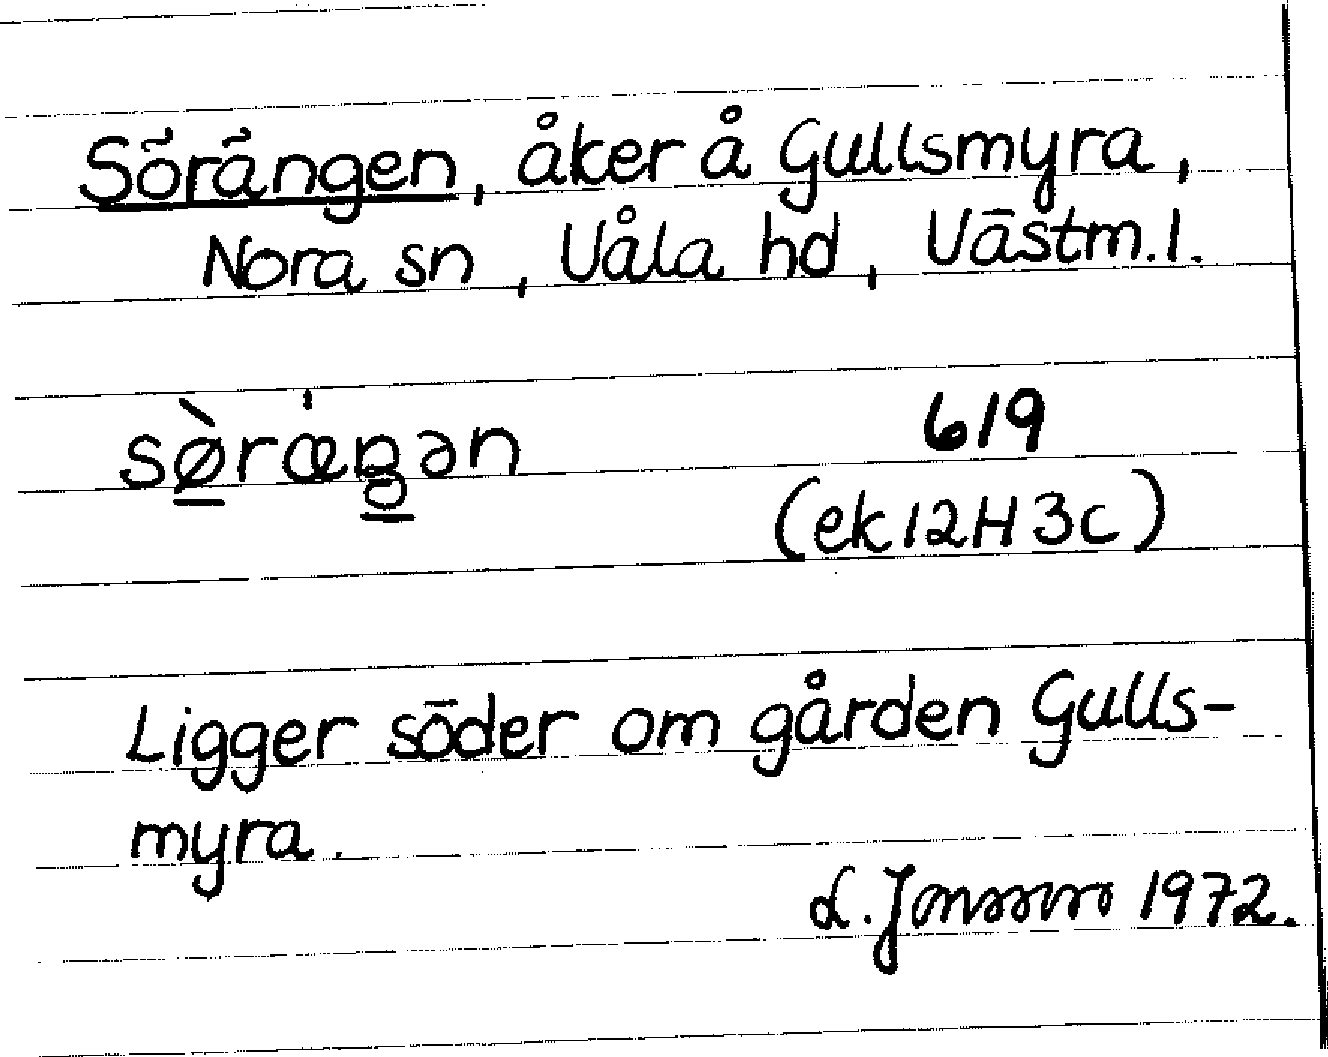 Sörängen, åker å Gullsmyra,
Nora sn, Våla hd, Västm. l.
sø̀rǽŋən 619
(ek 12H 3c)
Ligger söder om gården Gulls-
myra.
L. Jonsson 1972.